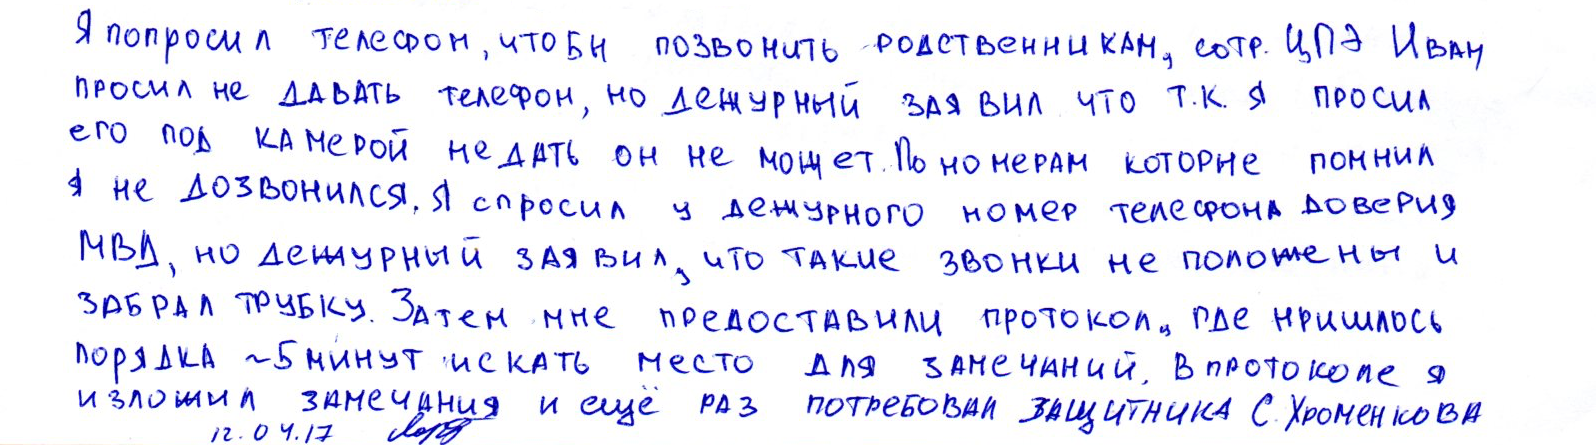 Я попросил телефон, чтобы позвонить родственникам, сотр. ЦПЭ Иван
просил не давать телефон, но дежурный заявил что т.к. я просил
его под камерой не дать он не может. По номерам которые помнил
я не дозвонился. Я спросил у дежурного номер телефона доверия
МВД, но дежурный заявил, что такие звонки не положены и
забрал трубку. Затем мне предоставили протокол, где пришлось
порядка ~5 минут искать место для замечаний. В протоколе я
изложил замечания и ещё раз потребовал защитника С. Хроменкова
12.04.17